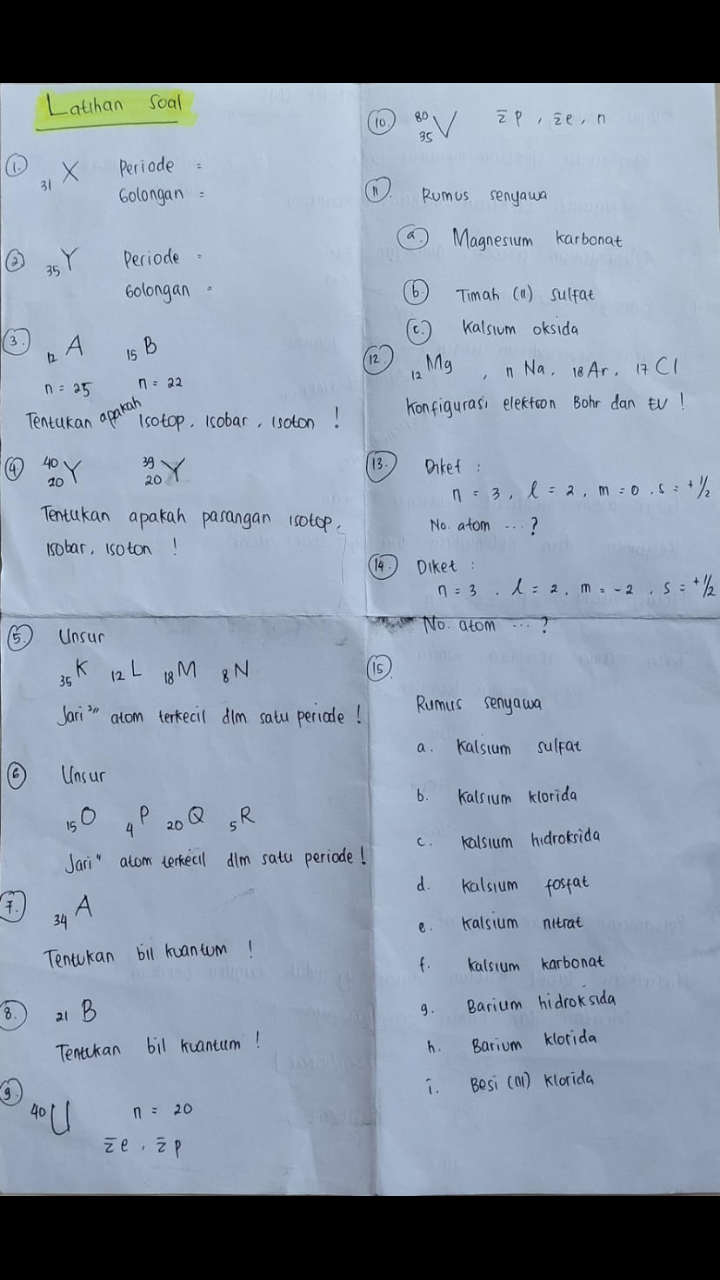 Latihan Soal
1. 31 X Periode =
Golongan =
2. 35 Y Periode =
Golongan =
3. 12 A 15 B
n = 25 n = 22
Tentukan apakah Isotop, Isobar, Isoton !
4. 40 20 Y 39 20 Y
Tentukan apakah pasangan isotop,
Isobar, Isoton !
5. Unsur
35 K 12 L 18 M 8 N
Jari" atom terkecil dlm satu periode !
6 Unsur
15 O 4 P 20 Q 5 R
Jari" atom terkecil dlm satu periode !
7. 34 A
Tentukan bil kuantum !
8. 21 B
Tentukan bil kuantum !
9 40 U n = 20
Σe, Σp
10. 80 35 V Σp, Σe, n
11. Rumus senyawa
a. Magnesium karbonat
b Timah (II) sulfat
c. Kalsium oksida
12. 12 Mg, 11 Na, 18 Ar, 17 Cl
Konfigurasi elektron Bohr dan EV !
13. Diket :
n = 3, l = 2, m = 0, s = +1/2
No. atom ... ?
14. Diket :
n = 3, l = 2, m = -2, s = +1/2
No. atom ... ?
15
Rumus senyawa
a. Kalsium sulfat
b. Kalsium klorida
c. Kalsium hidroksida
d. Kalsium fosfat
e. Kalsium nitrat
f. Kalsium karbonat
g. Barium hidroksida
h. Barium klorida
i. Besi (III) klorida